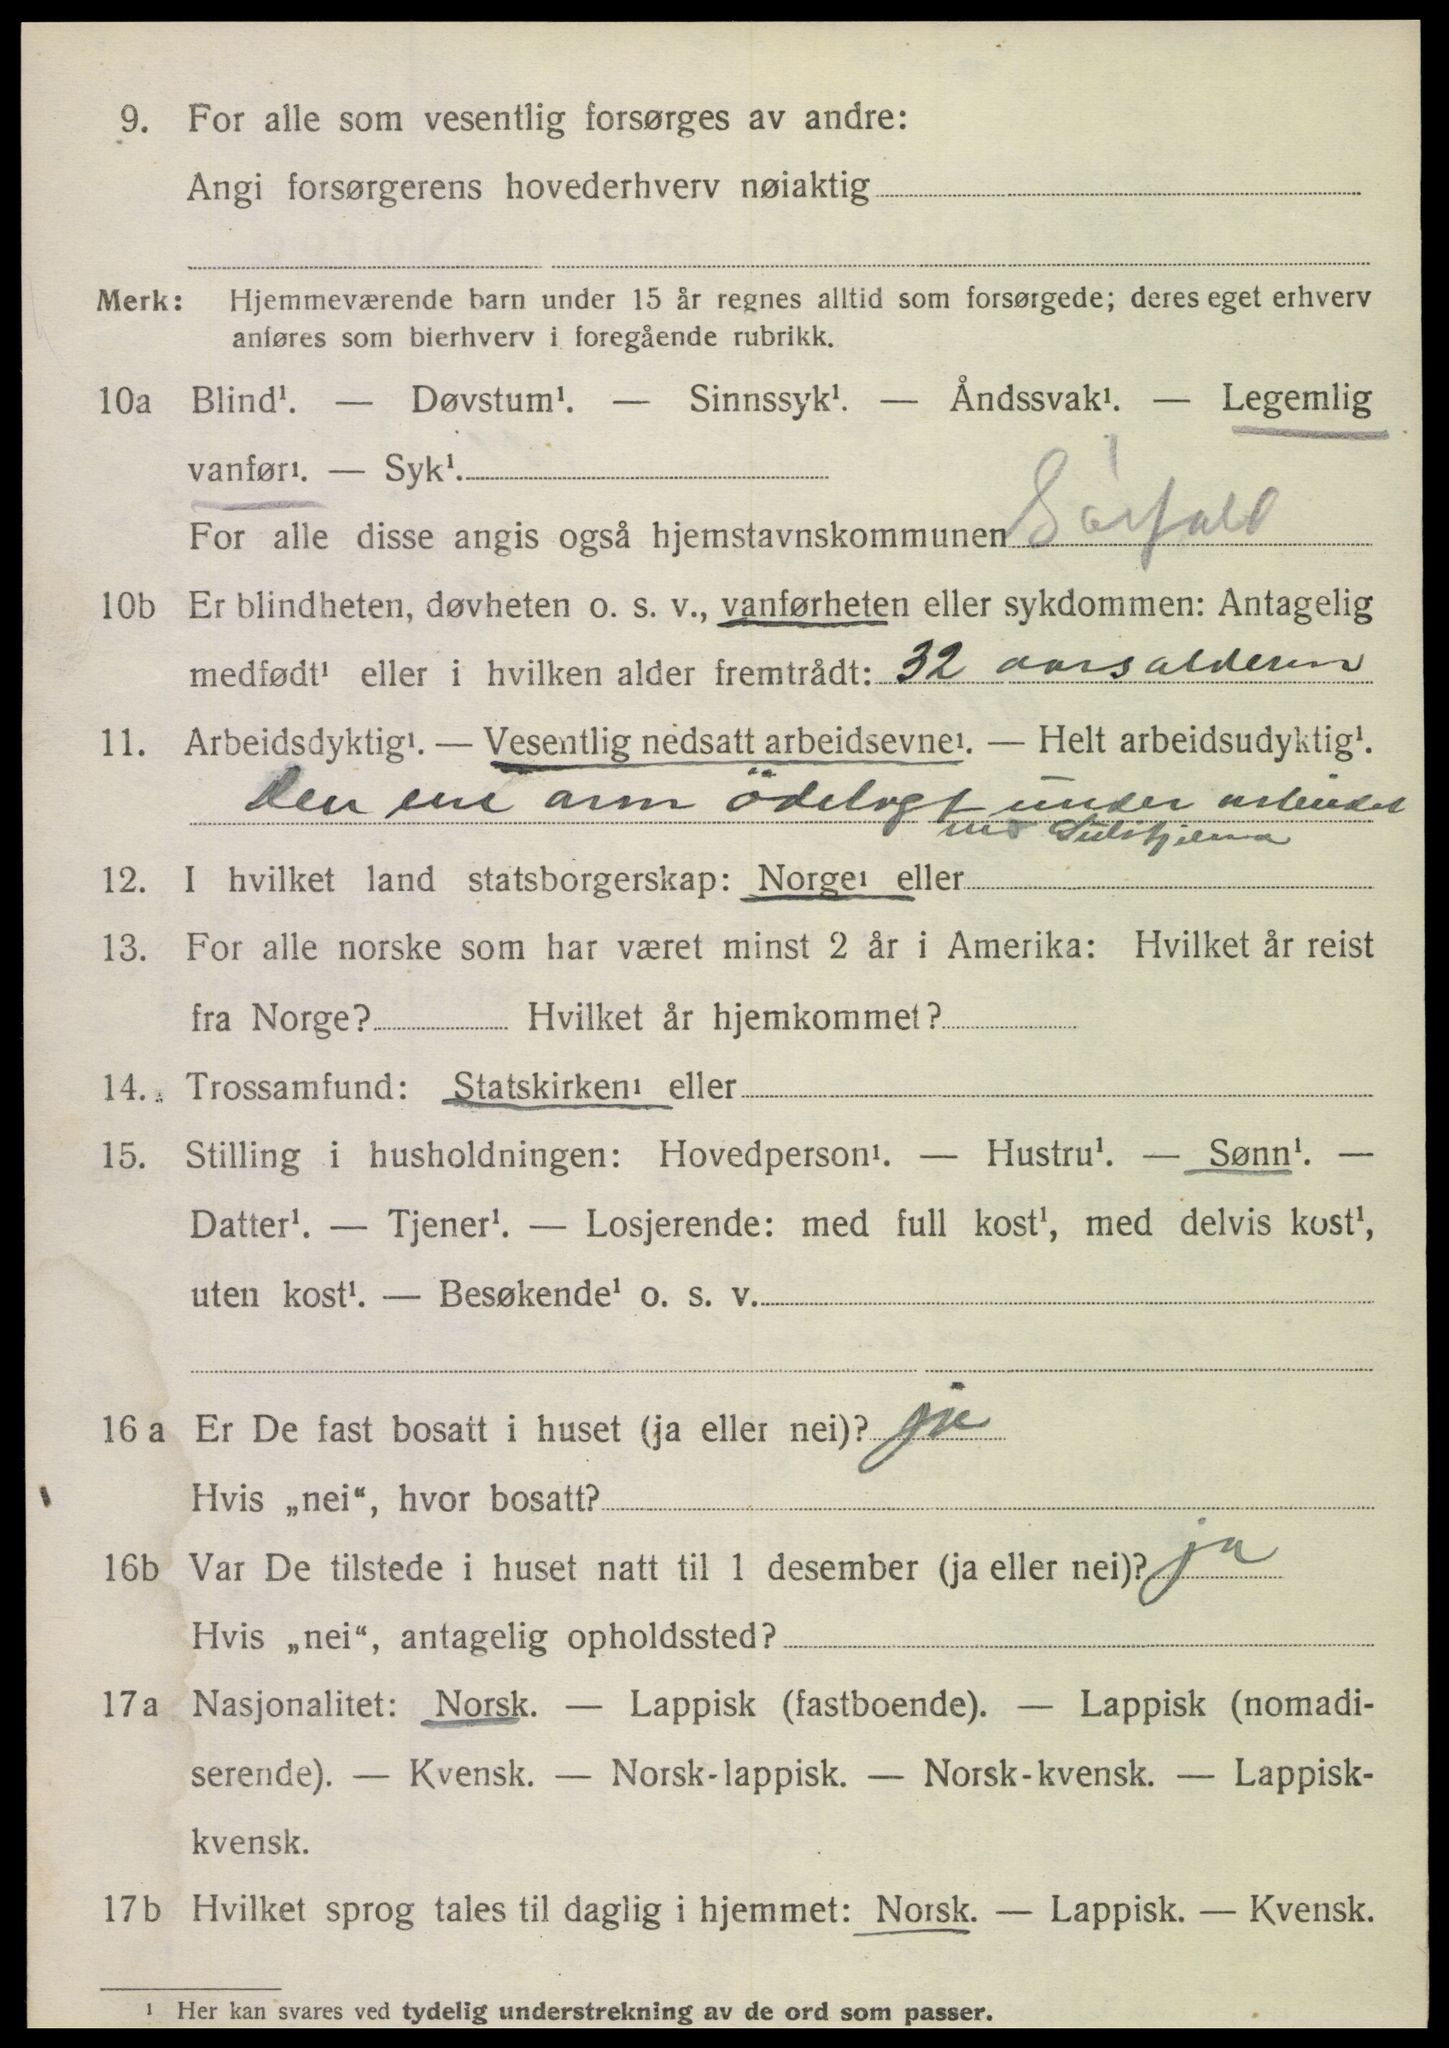 9. For alle som vesentlig forsørges av andre:
Angi forsørgerens hovederhverv nøiaktig
Merk: Hjemmeværende barn under 15 år regnes alltid som forsørgede; deres eget erhverv
anføres som bierhverv i foregående rubrikk.
10a Blind¹. — Døvstum¹. — Sinnssyk¹. — Åndssvak¹. — Legemlig
vanfør¹. — Syk¹.
For alle disse angis også hjemstavnskommunen Sörfold
10b Er blindheten, døvheten o. s. v., vanførheten eller sykdommen: Antagelig
medfødt¹ eller i hvilken alder fremtrådt: 32 aarsalderen
11. Arbeidsdyktig¹. — Vesentlig nedsatt arbeidsevne¹. — Helt arbeidsudyktig¹.
Den ene arm ödelagt under arbeidet
12. I hvilket land statsborgerskap: Norge¹ eller
13. For alle norske som har været minst 2 år i Amerika: Hvilket år reist
fra Norge? Hvilket år hjemkommet?
14. Trossamfund: Statskirken¹ eller
15. Stilling i husholdningen: Hovedperson¹. — Hustru¹. — Sønn¹. —
Datter¹. — Tjener¹. — Losjerende: med full kost¹, med delvis kost¹,
uten kost¹. — Besøkende¹ o. s. v.
16 a Er De fast bosatt i huset (ja eller nei)? ja
Hvis „nei“, hvor bosatt?
16b Var De tilstede i huset natt til 1 desember (ja eller nei)? ja
Hvis „nei“, antagelig opholdssted?
17a Nasjonalitet: Norsk. — Lappisk (fastboende). — Lappisk (nomadi-
serende). — Kvensk. — Norsk-lappisk. — Norsk-kvensk. — Lappisk-
kvensk.
17b Hvilket sprog tales til daglig i hjemmet: Norsk. — Lappisk. — Kvensk.
¹ Her kan svares ved tydelig understrekning av de ord som passer.